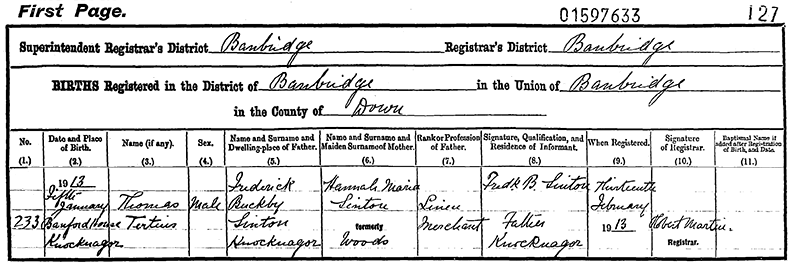 First Page. 01597633 127
Superintendent Registrar's District Banbridge Registrar's District Banbridge
BIRTHS Registered in the District of Banbridge in the Union of Banbridge
in the County of Down
No. Date and Place of Birth. Name (if any). Sex. Name and Surname and Dwelling-place of Father. Name and Surname and Maiden Surname of Mother. Rank or Profession of Father. Signature, Qualification, and Residence of Informant. When Registered. Signature of Registrar. Baptismal Name if added after Registration of Birth, and Date.
(1.) (2.) (3.) (4.) (5.) (6.) (7.) (8.) (9.) (10.) (11.)
1913 Frederick Hannah Maria Fredk B Sinton Thirteenth
Fifth January Thomas Male Buckby Sinton Linen February
233 Banford House Tertius Sinton formerly Merchant Father 1913 Robert Martin.
Knocknagor Knocknagor Woods Knocknagor Registrar.